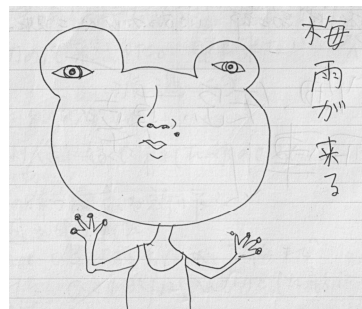 梅雨が来る